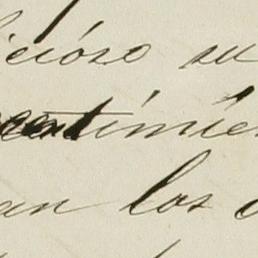 icióso su
sentimien
an los